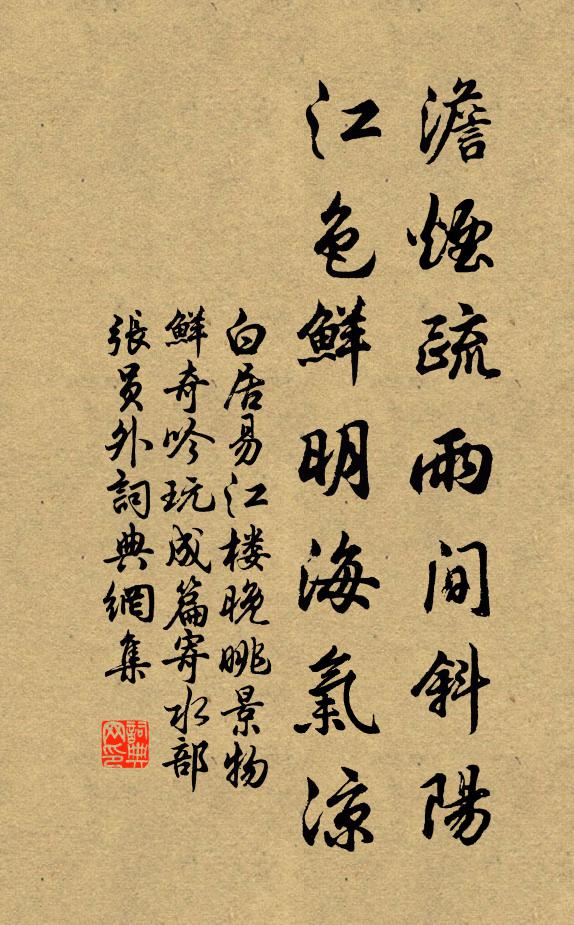 澹煙疏雨間斜陽
江色鮮明海氣涼
白居易江楼晚眺景物
鮮奇吟玩成篇寄水部
張員外詞典網集
詞典網印